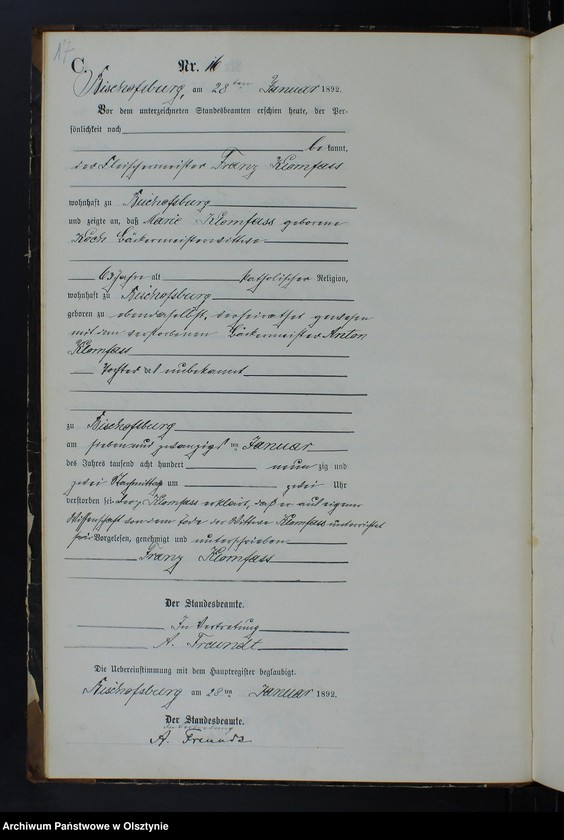 17
C.
Nr. 16
Bischofsburg, am 28ten Januar 1892.
Vor dem unterzeichneten Standesbeamten erschien heute, der Per-
sönlichkeit nach
bekannt,
der Fleischermeister Franz Klomfass
wohnhaft zu Bischofsburg
und zeigte an, daß Marie Klomfass geborene
Koch Bäckermeisterwittwe
63 Jahre alt katholischer Religion,
wohnhaft zu Bischofsburg
geboren zu ebendaselbst, verheirathet gewesen
mit dem verstorbenen Bäckermeister Anton
Klomfass
Tochter des unbekannt
zu Bischofsburg
am sieben und zwanzigsten Januar
des Jahres tausend acht hundert neunzig und
zwei Nachmittags um zwei Uhr
verstorben sei. Klomfass erklärt, daß er aus eigener
Wissenschaft von dem Tode der Wittwe Klomfass unterrichtet
sei. Vorgelesen, genehmigt und unterschrieben
Franz Klomfass
Der Standesbeamte.
In Vertretung
A. Freundt
Die Uebereinstimmung mit dem Hauptregister beglaubigt.
Bischofsburg am 28ten Januar 1892.
Der Standesbeamte.
In Vertretung
A. Freundt
Archiwum Państwowe w Olsztynie